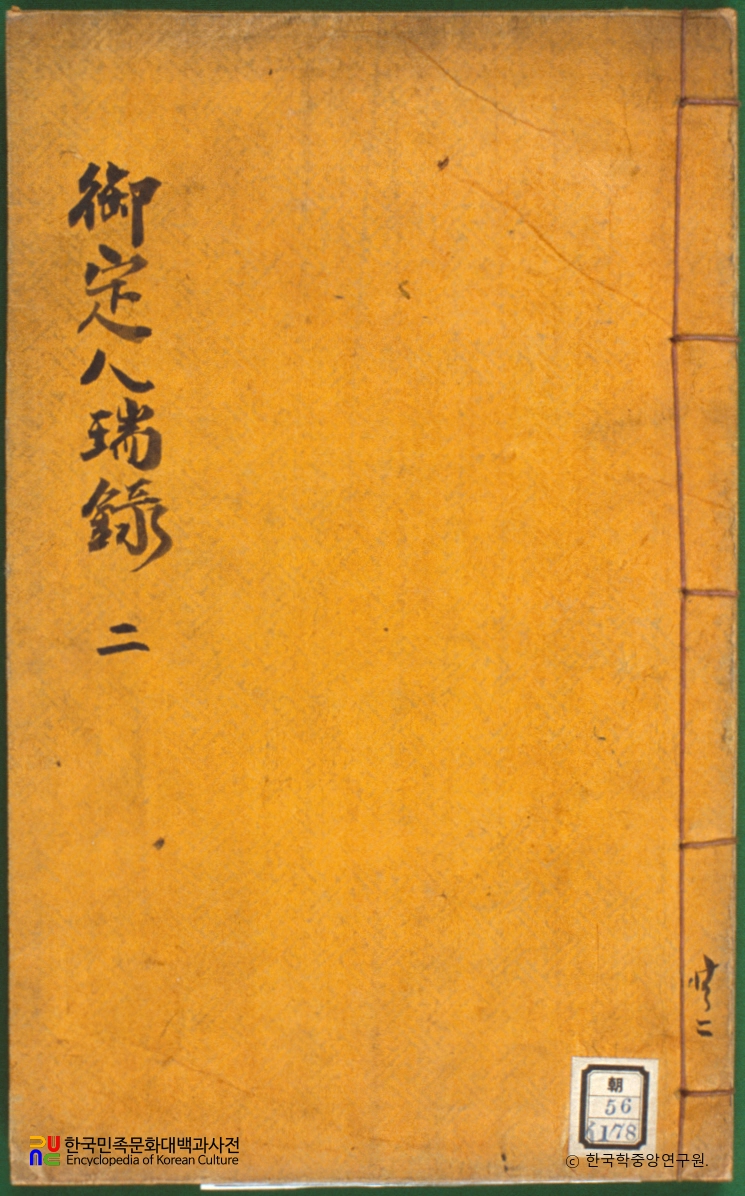 御定人瑞錄 二
二
朝
56
178
한국민족문화대백과사전
Encyclopedia of Korean Culture
© 한국학중앙연구원.